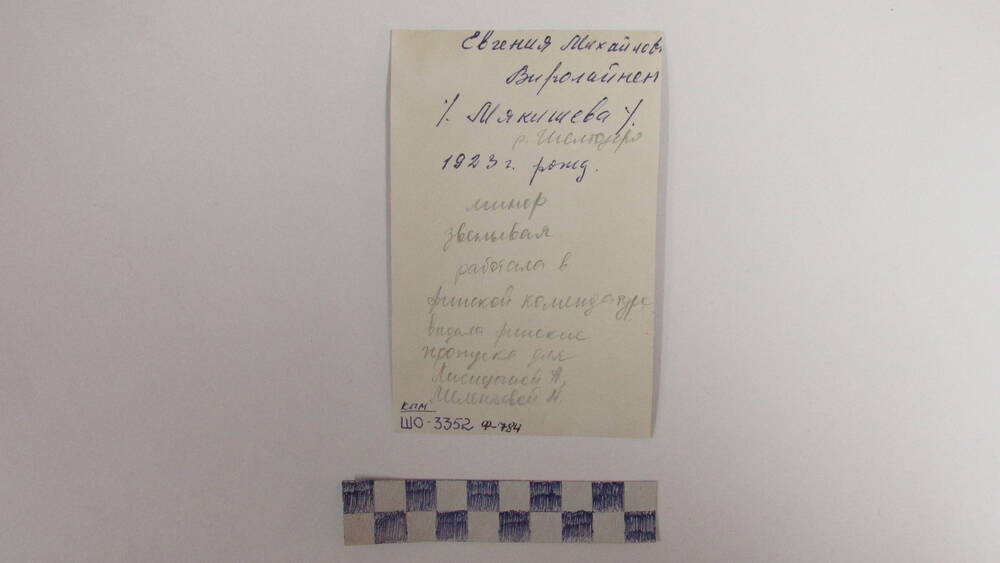 Евгения Михайлов
Виролайнен
/. Мякишева /.
р. Шелтозеро
1923 г. рожд.
минер
звеньевая
работала в
финской комендатуре
выдала финские
пропуска для
Лисицыной А,
Мелентьевой М.
КПМ
ШО-3352 Ф-784